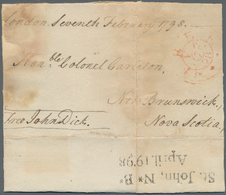 London Seventh February 1798.
Honble Colonel Carleton,
New Brunswick,
Nova Scotia,
Free John Dick.
St. John, N* Bk
April 19 '98